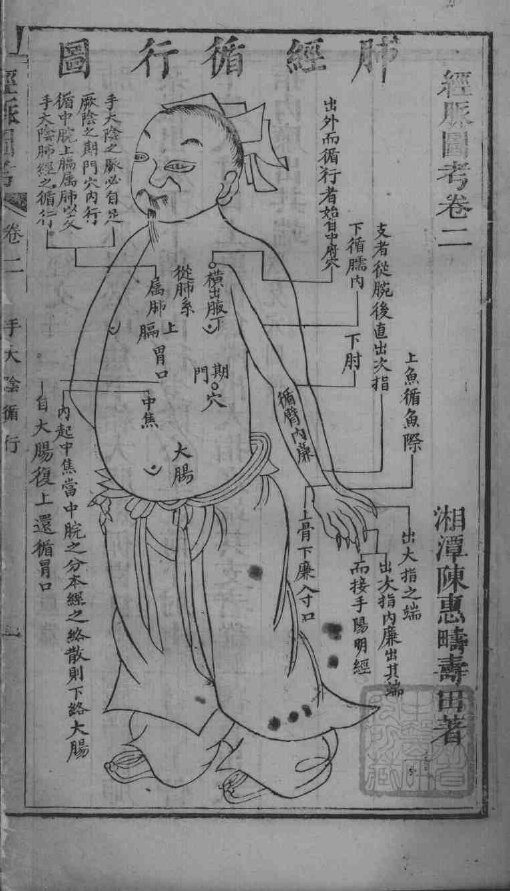 經脈圖考卷二
湘潭陳惠疇壽田著
肺經循行圖
上魚循魚際
出大指之端
支者從腕後直出次指
出次指内廉出其端
而接手陽明經
下循臑内
下肘
循臂内廉
上骨下廉入寸口
出外而循行者始自中府穴
橫出腋下
從肺系
上膈
屬肺
胃口
期門穴
中焦
大腸
手太陰之脈必自足
厥陰之期門穴内行
循中脘上膈屬肺以交
手太陰肺經之循行
内起中焦當中脘之分本經之絡散則下絡大腸
自大腸復上還循胃口
經脈圖考
卷二
手太陰循行